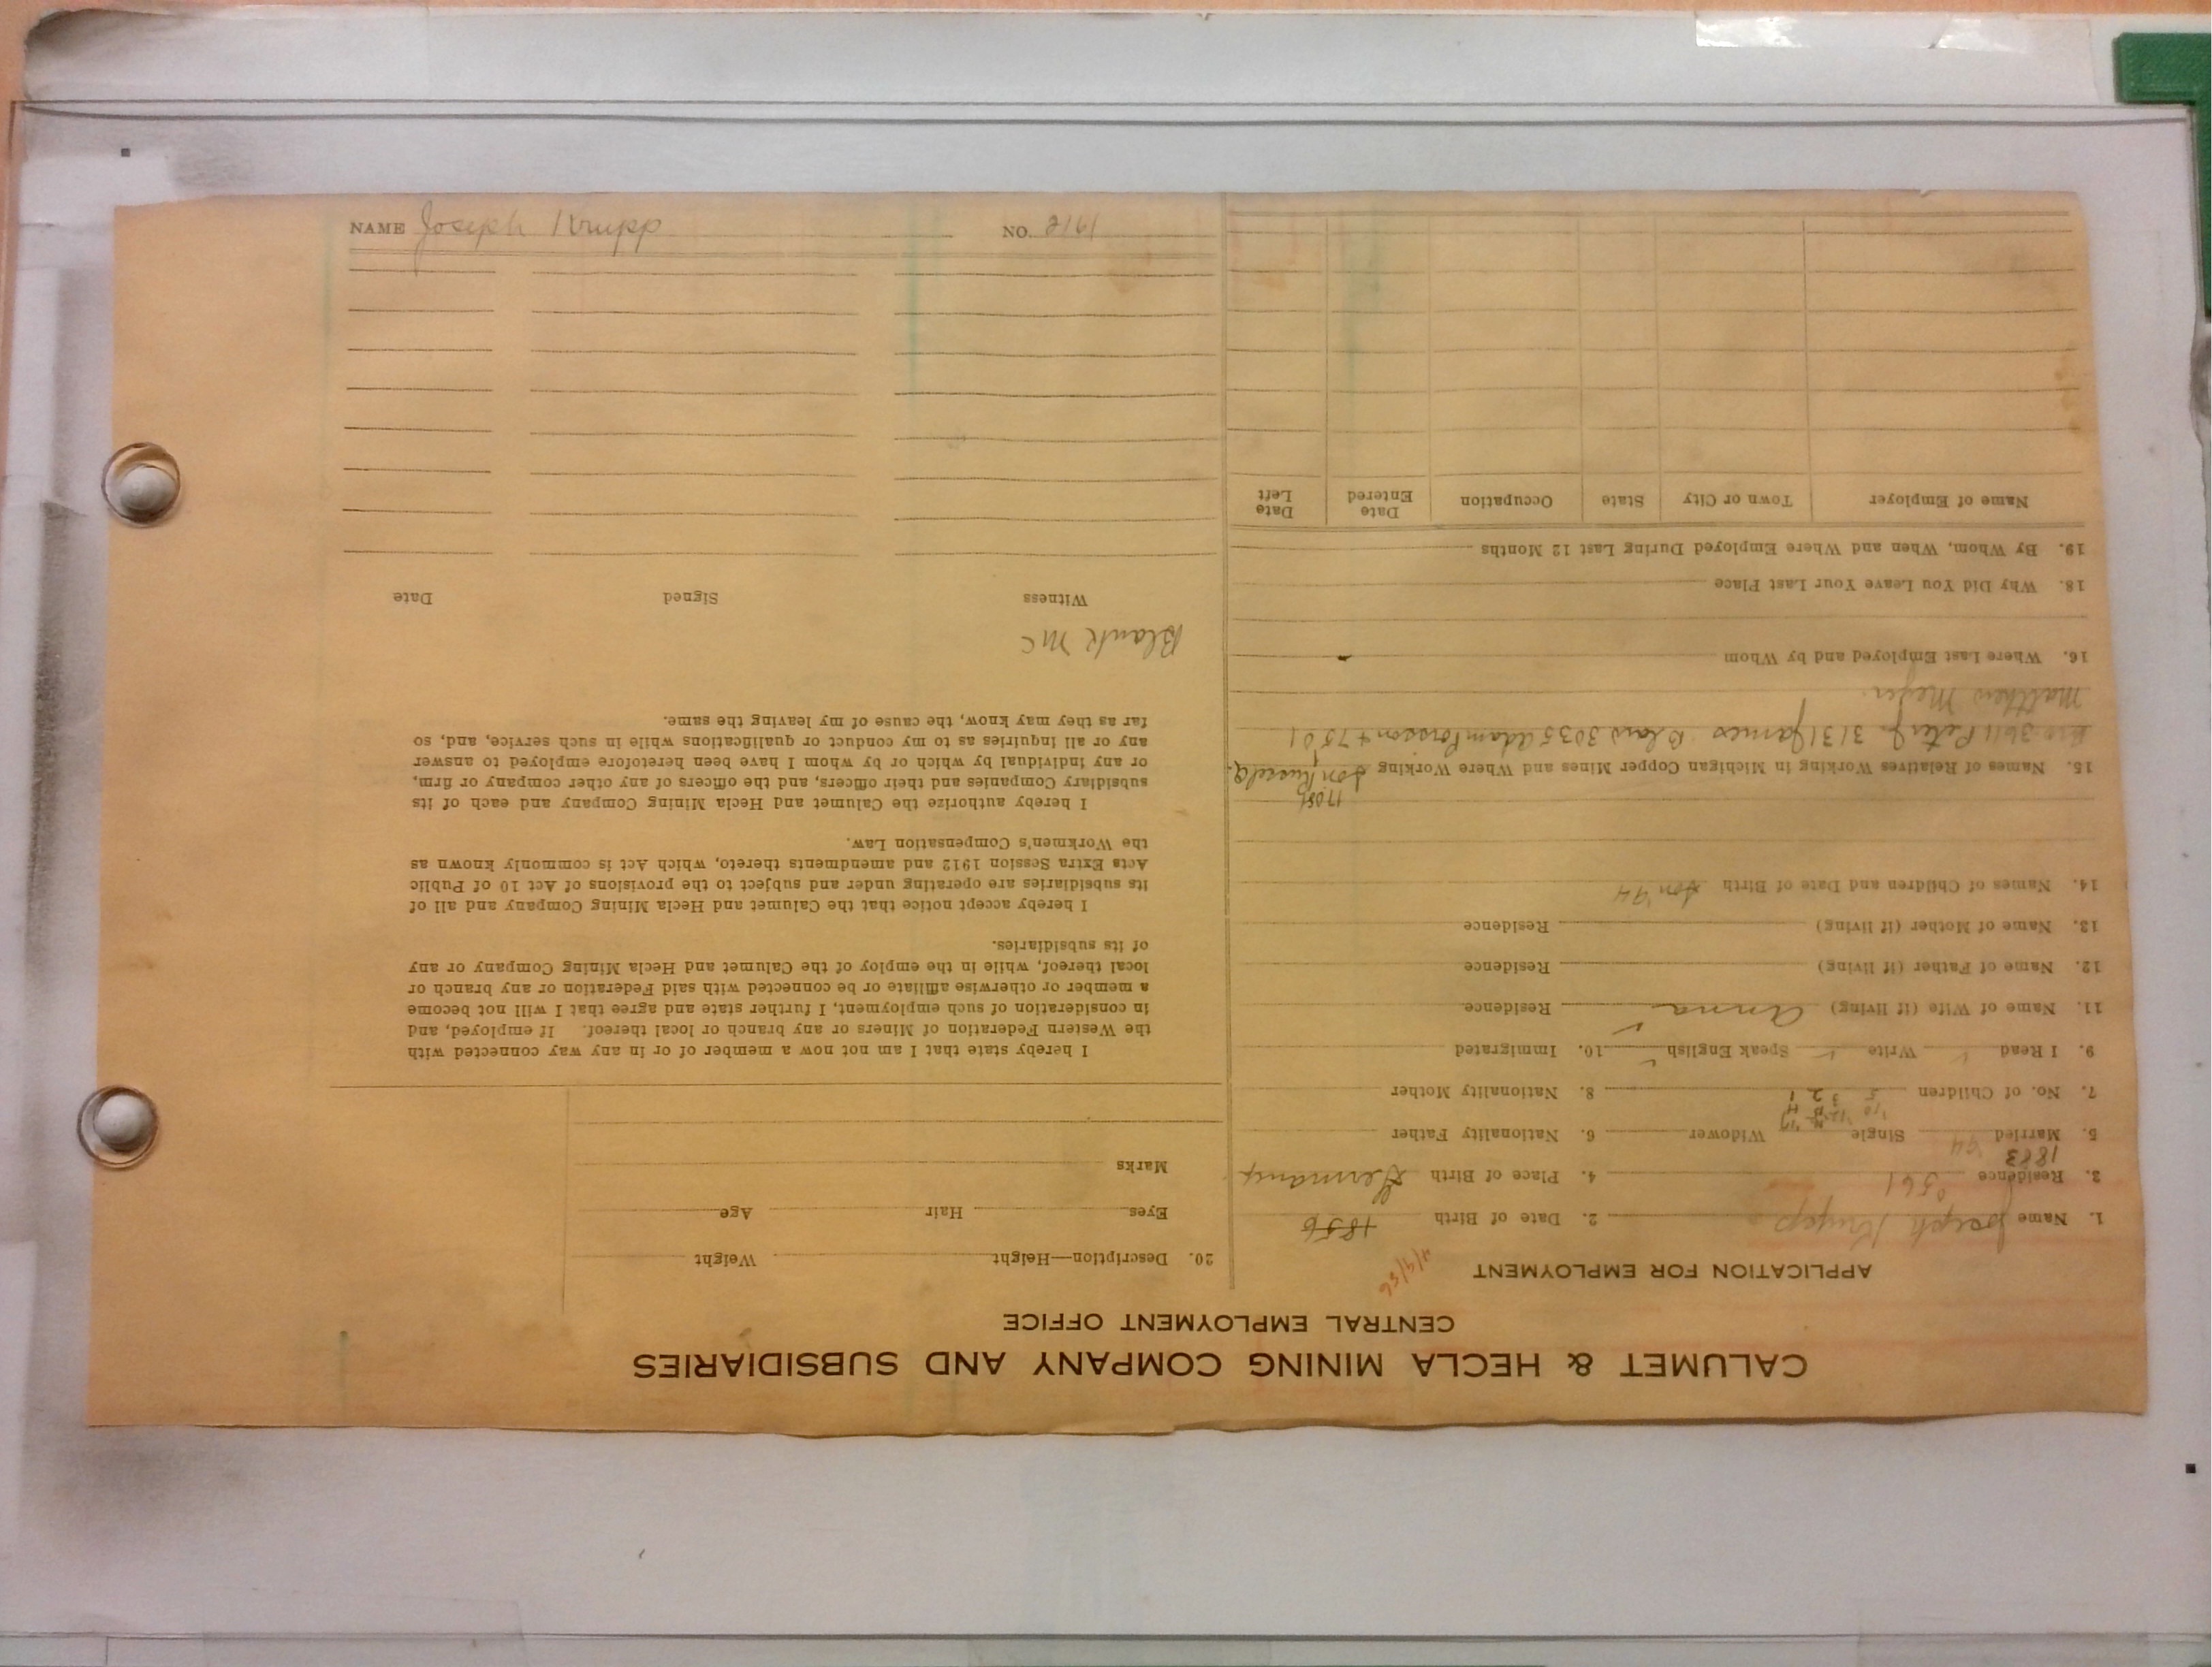 CALUMET & HECLA MINING COMPANY AND SUBSIDIARIES
CENTRAL EMPLOYMENT OFFICE
APPLICATION FOR EMPLOYMENT
1. Name Joseph Krupp 2. Date of Birth 1856
3. Residence 561 4. Place of Birth Germany
1883
5. Married 94 Single Widower 6. Nationality Father
7. No. of Children 5 3 2 1 8. Nationality Mother
9. I Read Write Speak English 10. Immigrated
11. Name of Wife (if living) Anna Residence
12. Name of Father (if living) Residence
13. Name of Mother (if living) Residence
14. Names of Children and Date of Birth Son '94
15. Names of Relatives Working in Michigan Copper Mines and Where Working Son
3611 Peter J. 3131 James Blows 3035 Adam
Matthew Meyer
16. Where Last Employed and by Whom
18. Why Did You Leave Your Last Place
19. By Whom, When and Where Employed During Last 12 Months
Name of Employer Town or City State Occupation Date Entered Date Left
20. Description—Height Weight
Eyes Hair Age
Marks
I hereby state that I am not now a member of or in any way connected with
the Western Federation of Miners or any branch or local thereof. If employed, and
in consideration of such employment, I further state and agree that I will not become
a member or otherwise affiliate or be connected with said Federation or any branch or
local thereof, while in the employ of the Calumet and Hecla Mining Company or any
of its subsidiaries.
I hereby accept notice that the Calumet and Hecla Mining Company and all of
its subsidiaries are operating under and subject to the provisions of Act 10 of Public
Acts Extra Session 1912 and amendments thereto, which Act is commonly known as
the Workmen's Compensation Law.
I hereby authorize the Calumet and Hecla Mining Company and each of its
subsidiary Companies and their officers, and the officers of any other company or firm,
or any individual by which or by whom I have been heretofore employed to answer
any or all inquiries as to my conduct or qualifications while in such service, and, so
far as they may know, the cause of my leaving the same.
Blank MC
Witness Signed Date
NAME Joseph Krupp NO. 2161